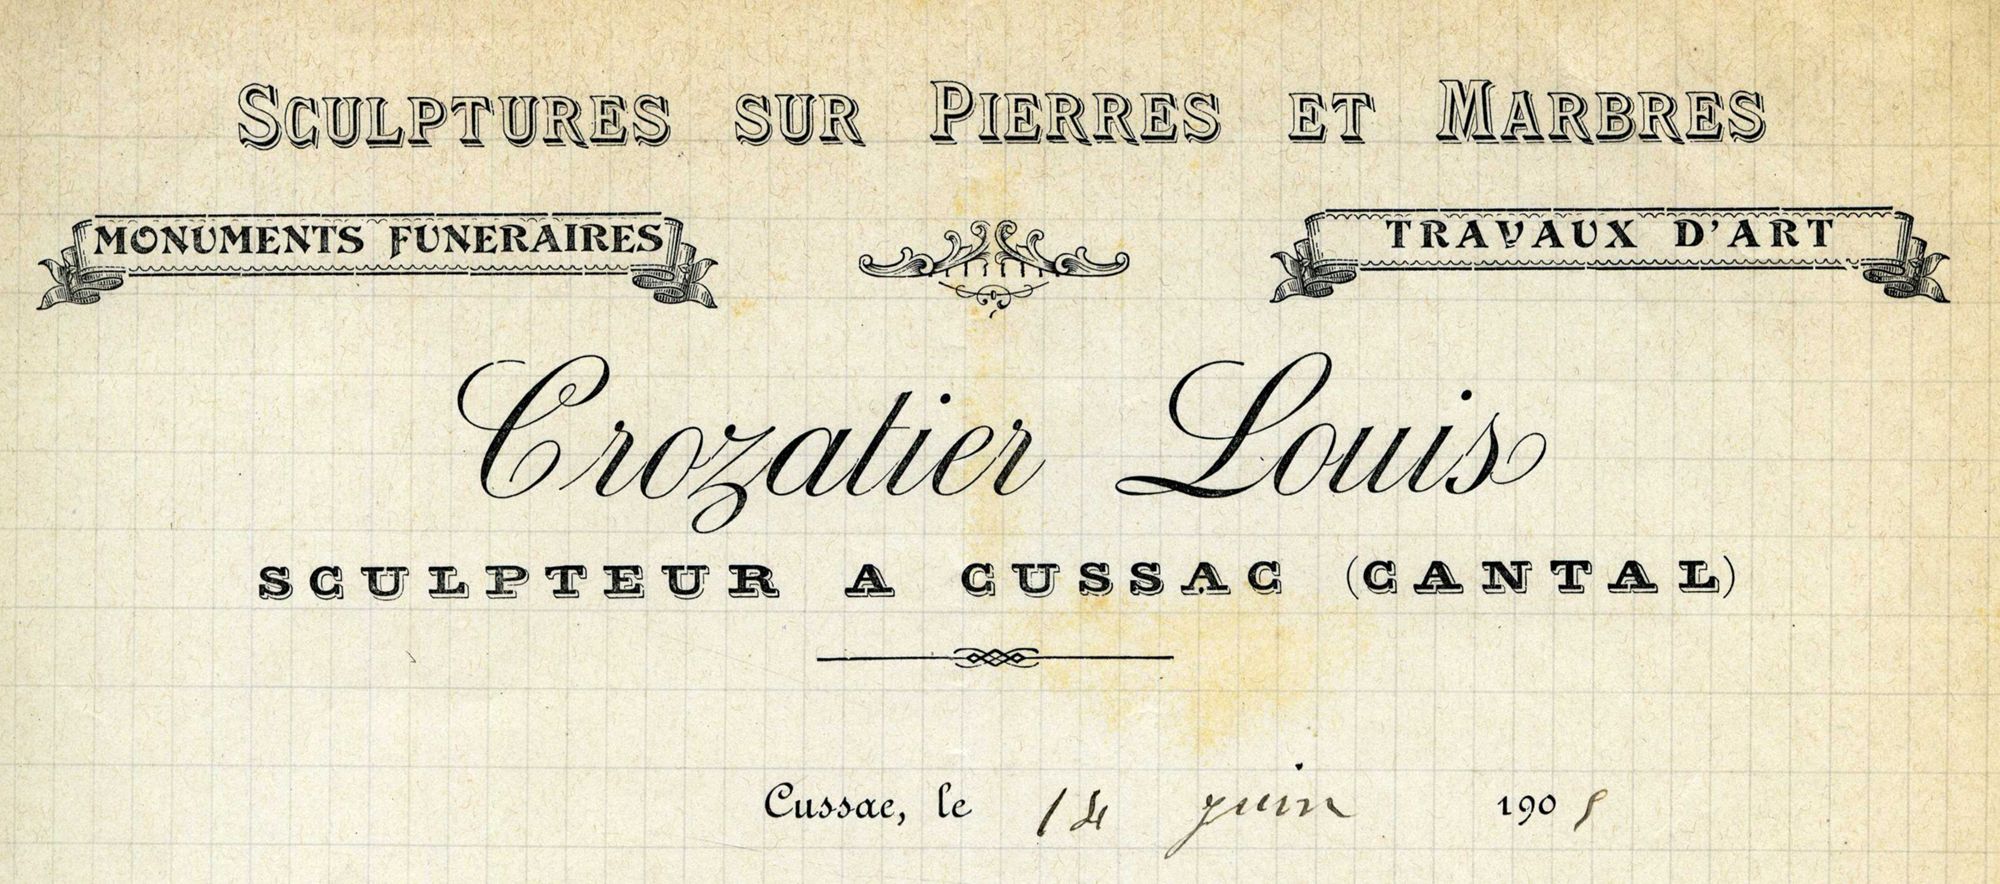 SCULPTURES SUR PIERRES ET MARBRES
MONUMENTS FUNERAIRES
TRAVAUX D'ART
Crozatier Louis
SCULPTEUR A CUSSAC (CANTAL)
Cussac, le 14 juin 1905